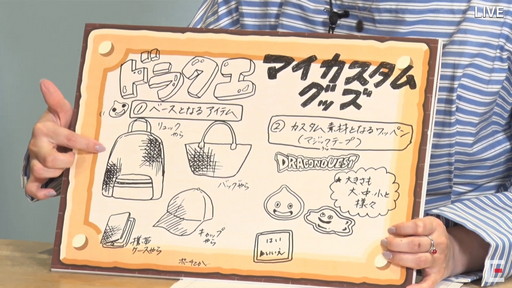 LIVE
ドラクエ
マイカスタム
グッズ
①ベースとなるアイテム
リュック
やら
バッグやら
携帯
ケースやら
キャップ
やら
②カスタム素材となるワッペン
(マジックテープ)
DRAGON QUEST
大きさも
大中小と
様々
はい
いいえ